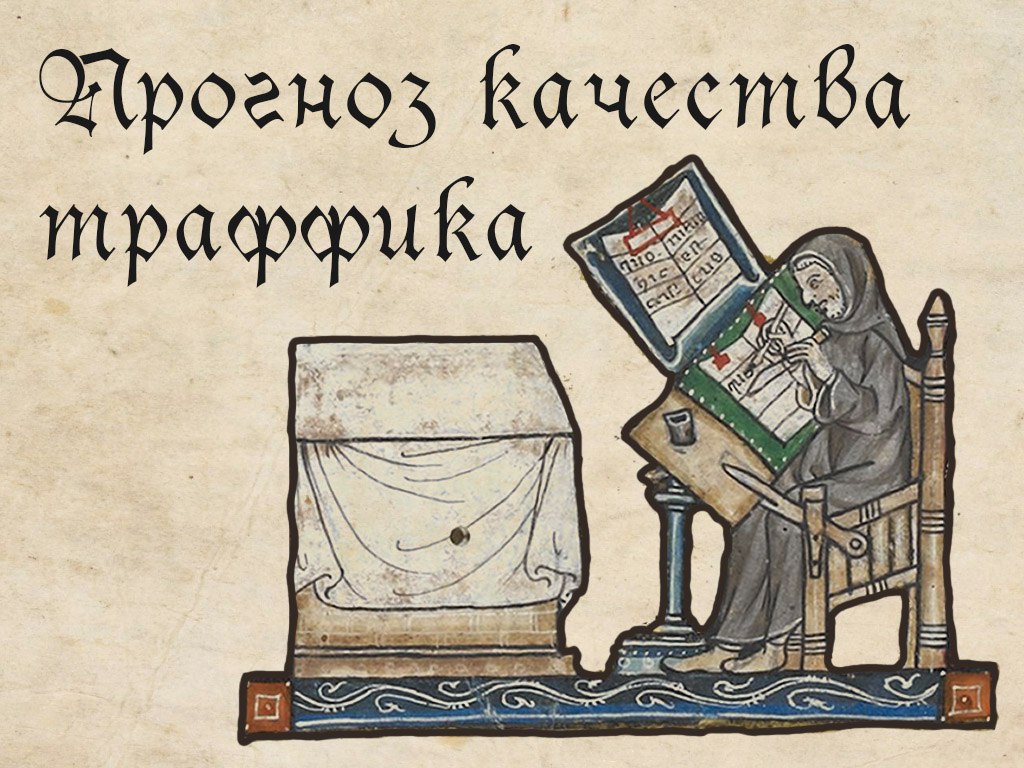 Прогноз качества
траффика